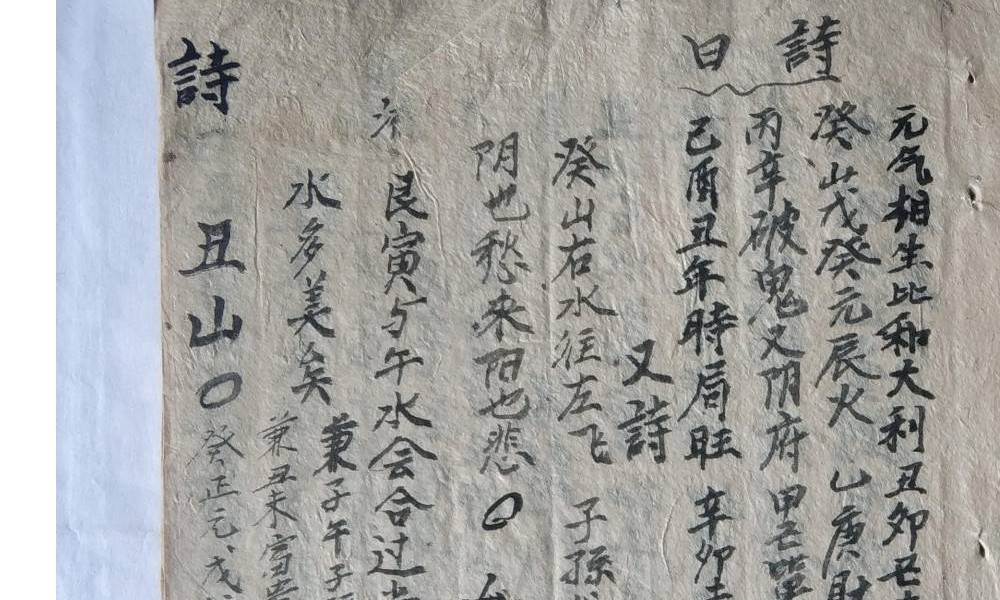 元气相生比和大利丑卯
詩曰
癸山戊癸元辰火 乙庚財
丙辛破鬼又阴府 甲
己酉丑年時局旺 辛卯
又詩
癸山右水往左飞 子孫
阴也愁来阳也悲〇
艮寅与午水会合过
水多美矣
兼子午子
兼丑未富貴
詩
丑山〇癸正元戊